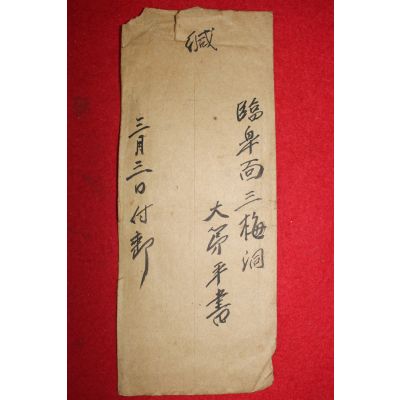 緘
臨皐面三梅洞
大第平書
三月三日付郵